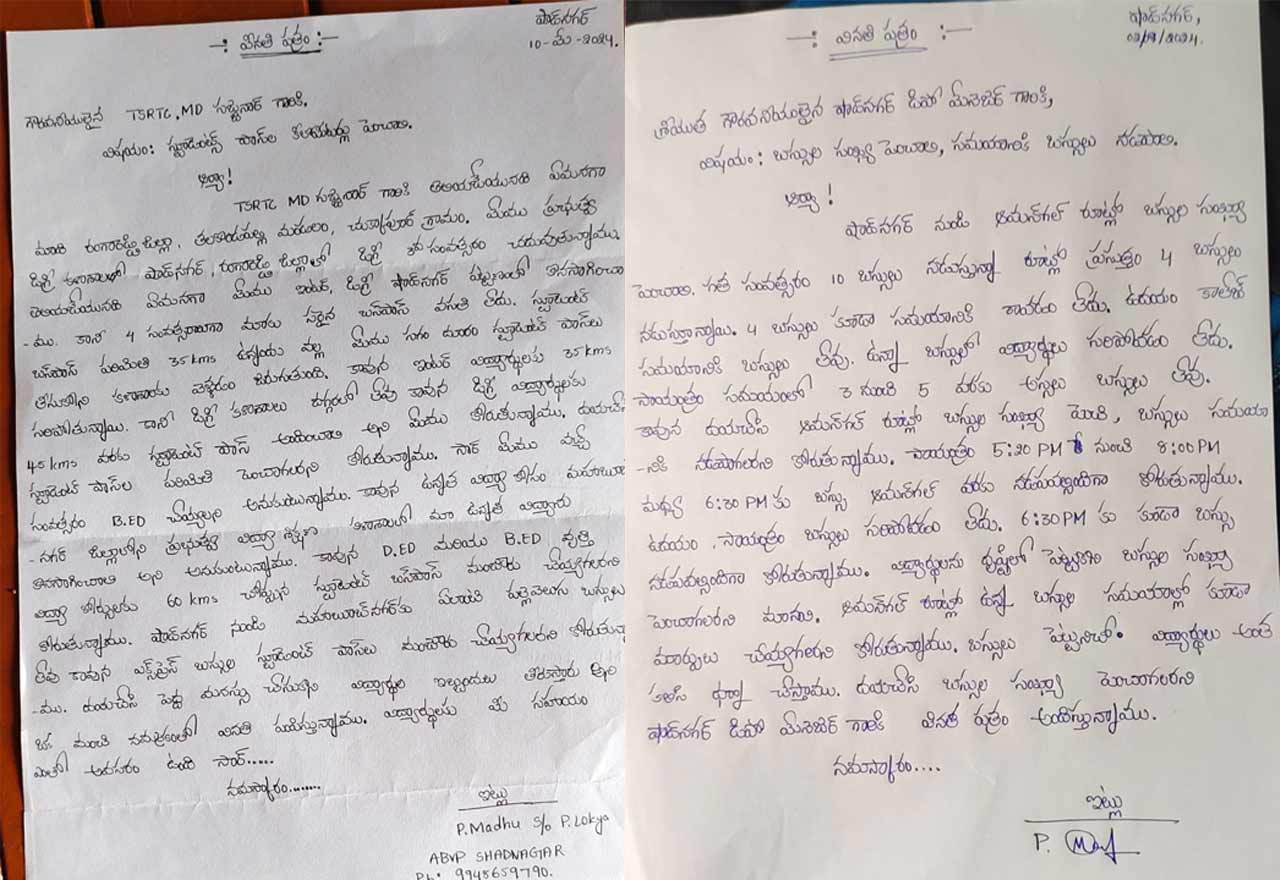 షాద్‌నగర్
10-మే-2024.
—: వినతి పత్రం :—
గౌరవనీయులైన TSRTC.MD సజ్జనార్ గారికి.
విషయం: స్టూడెంట్స్ పాస్‌ల కిలోమీటర్లు పెంచాలి.
అయ్యా!
TSRTC MD సజ్జనార్ గారికి తెలియజేయునది ఏమనగా
మాది రంగారెడ్డి జిల్లా, తలకొండపల్లి మండలం, గ్రామం. మేము ప్రభుత్వ
డిగ్రీ కళాశాలలో షాద్‌నగర్, రంగారెడ్డి జిల్లాలో డిగ్రీ 3వ సంవత్సరం చదువుతున్నాము.
తెలియజేయునది ఏమనగా మేము ఇంటర్, డిగ్రీ షాద్‌నగర్ పట్టణంలో కొనసాగించా
-ము. కానీ 4 సంవత్సరాలుగా మాకు సరైన బస్‌పాస్ వసతి లేదు. స్టూడెంట్
బస్‌పాస్ పరిమితి 35 kms ఉన్నందు వల్ల మేము సగం దూరం స్టూడెంట్ పాస్‌లు
తీసుకొని కళాశాలకు వెళ్ళడం జరుగుతుంది. కావున ఇంటర్ విద్యార్థులకు 35 kms
సరిపోతున్నాయి. కానీ డిగ్రీ కళాశాలలు దగ్గరలో లేవు కావున డిగ్రీ విద్యార్థులకు
45 kms వరకు స్టూడెంట్ పాస్ అందించాలి అని మేము కోరుతున్నాము. దయచేసి
స్టూడెంట్ పాస్‌ల పరిమితి పెంచాగలరని కోరుతున్నాము. సార్ మేము వచ్చే
సంవత్సరం B.ED చేయ్యాలని అనుకుంటున్నాము. కావున ఉన్నత విద్యా కోసం మహాబూబ్
-నగర్ జిల్లాలోని ప్రభుత్వ విద్యా శిక్షణ కళాశాలలో మా ఉన్నత విద్యాను
కొనసాగించాలి అని అనుకుంటున్నాము. కావున D.ED మరియు B.ED వృత్తి
విద్యా కోర్సులకు 60 kms స్టూడెంట్ బస్‌పాస్ మంజూరు చేయ్యగలరని
కోరుతున్నాము. షాద్‌నగర్ నుండి మహాబూబ్‌నగర్‌కు ఏలాంటి పల్లెవెలుగు బస్సులు
లేవు కావున ఎక్స్‌ప్రెస్ బస్సుల స్టూడెంట్ పాస్‌లు మంజూరు చేయ్యగలరని కోరుతున్నా
-ము. దయచేసి పెద్ద మనస్సు చేసుకొని విద్యార్థుల ఇబ్బందులు తీరుస్తారు అని
ఒక మంచి ఉద్దేశంతో వినతి పంపిస్తున్నాము. విద్యార్థులకు మీ సహాయం
ఎంతో అవసరం ఉంది సార్.....
నమస్కారం.......
ఇట్లు
P.Madhu S/o P.Lokya
ABVP SHADNAGAR
Ph: 9948659790.
షాద్‌నగర్,
—: వినతి పత్రం :—
శ్రీయుత గౌరవనీయులైన షాద్‌నగర్ డిపో మేనేజర్ గారికి,
విషయం: బస్సుల సంఖ్య పెంచాలి, సమయానికి బస్సులు నడపాలి.
అయ్యా!
షాద్‌నగర్ నుండి ఆమన్‌గల్ రూట్లో బస్సుల సంఖ్యా
పెంచాలి. గత సంవత్సరం 10 బస్సులు నడుస్తున్నా రూట్లో ప్రస్తుత్తం 4 బస్సులు
నడుస్తున్నాయి. 4 బస్సులు కూడా సమయానికి రావడం లేదు. ఉదయం కాలేజ్
సమయానికి బస్సులు లేవు. ఉన్నా బస్సుల్లో విద్యార్థులు సరిపోవడం లేదు.
సాయంత్రం సమయంలో 3 నుంచి 5 వరకు అస్సలు బస్సులు లేవు.
కావున దయచేసి ఆమన్‌గల్ రూట్లో బస్సుల సంఖ్యా పెంచి, బస్సులు సమయా
-నికి నడపాగలరని కోరుతున్నాము. సాయంత్రం 5:20 PM నుంచి 8:00 PM
మధ్య 6:30 PM కు బస్సు ఆమన్‌గల్ వరకు నడపవల్సిందిగా కోరుతున్నాము.
ఉదయం, సాయంత్రం బస్సులు సరిపోవడం లేదు. 6:30 PM కు కూడా బస్సు
నడపవల్సిందిగా కోరుతున్నాము. విద్యార్థులను దృష్టిలో పెట్టుకొని బస్సుల సంఖ్యా
పెంచాగలరని మానవి. ఆమన్‌గల్ రూట్లో ఉన్న బస్సుల సమయాల్లో కూడా
మార్పులు చేయ్యగలరని కోరుతున్నాము. బస్సులు పెట్టనిచో విద్యార్థులు అంత
కలిసి ధర్నా చేస్తాము. దయచేసి బస్సుల సంఖ్యా పెంచాగలరని
షాద్‌నగర్ డిపో మేనేజర్ గారికి వినతి పత్రం అందిస్తున్నాము.
నమస్కారం....
ఇట్లు
P.